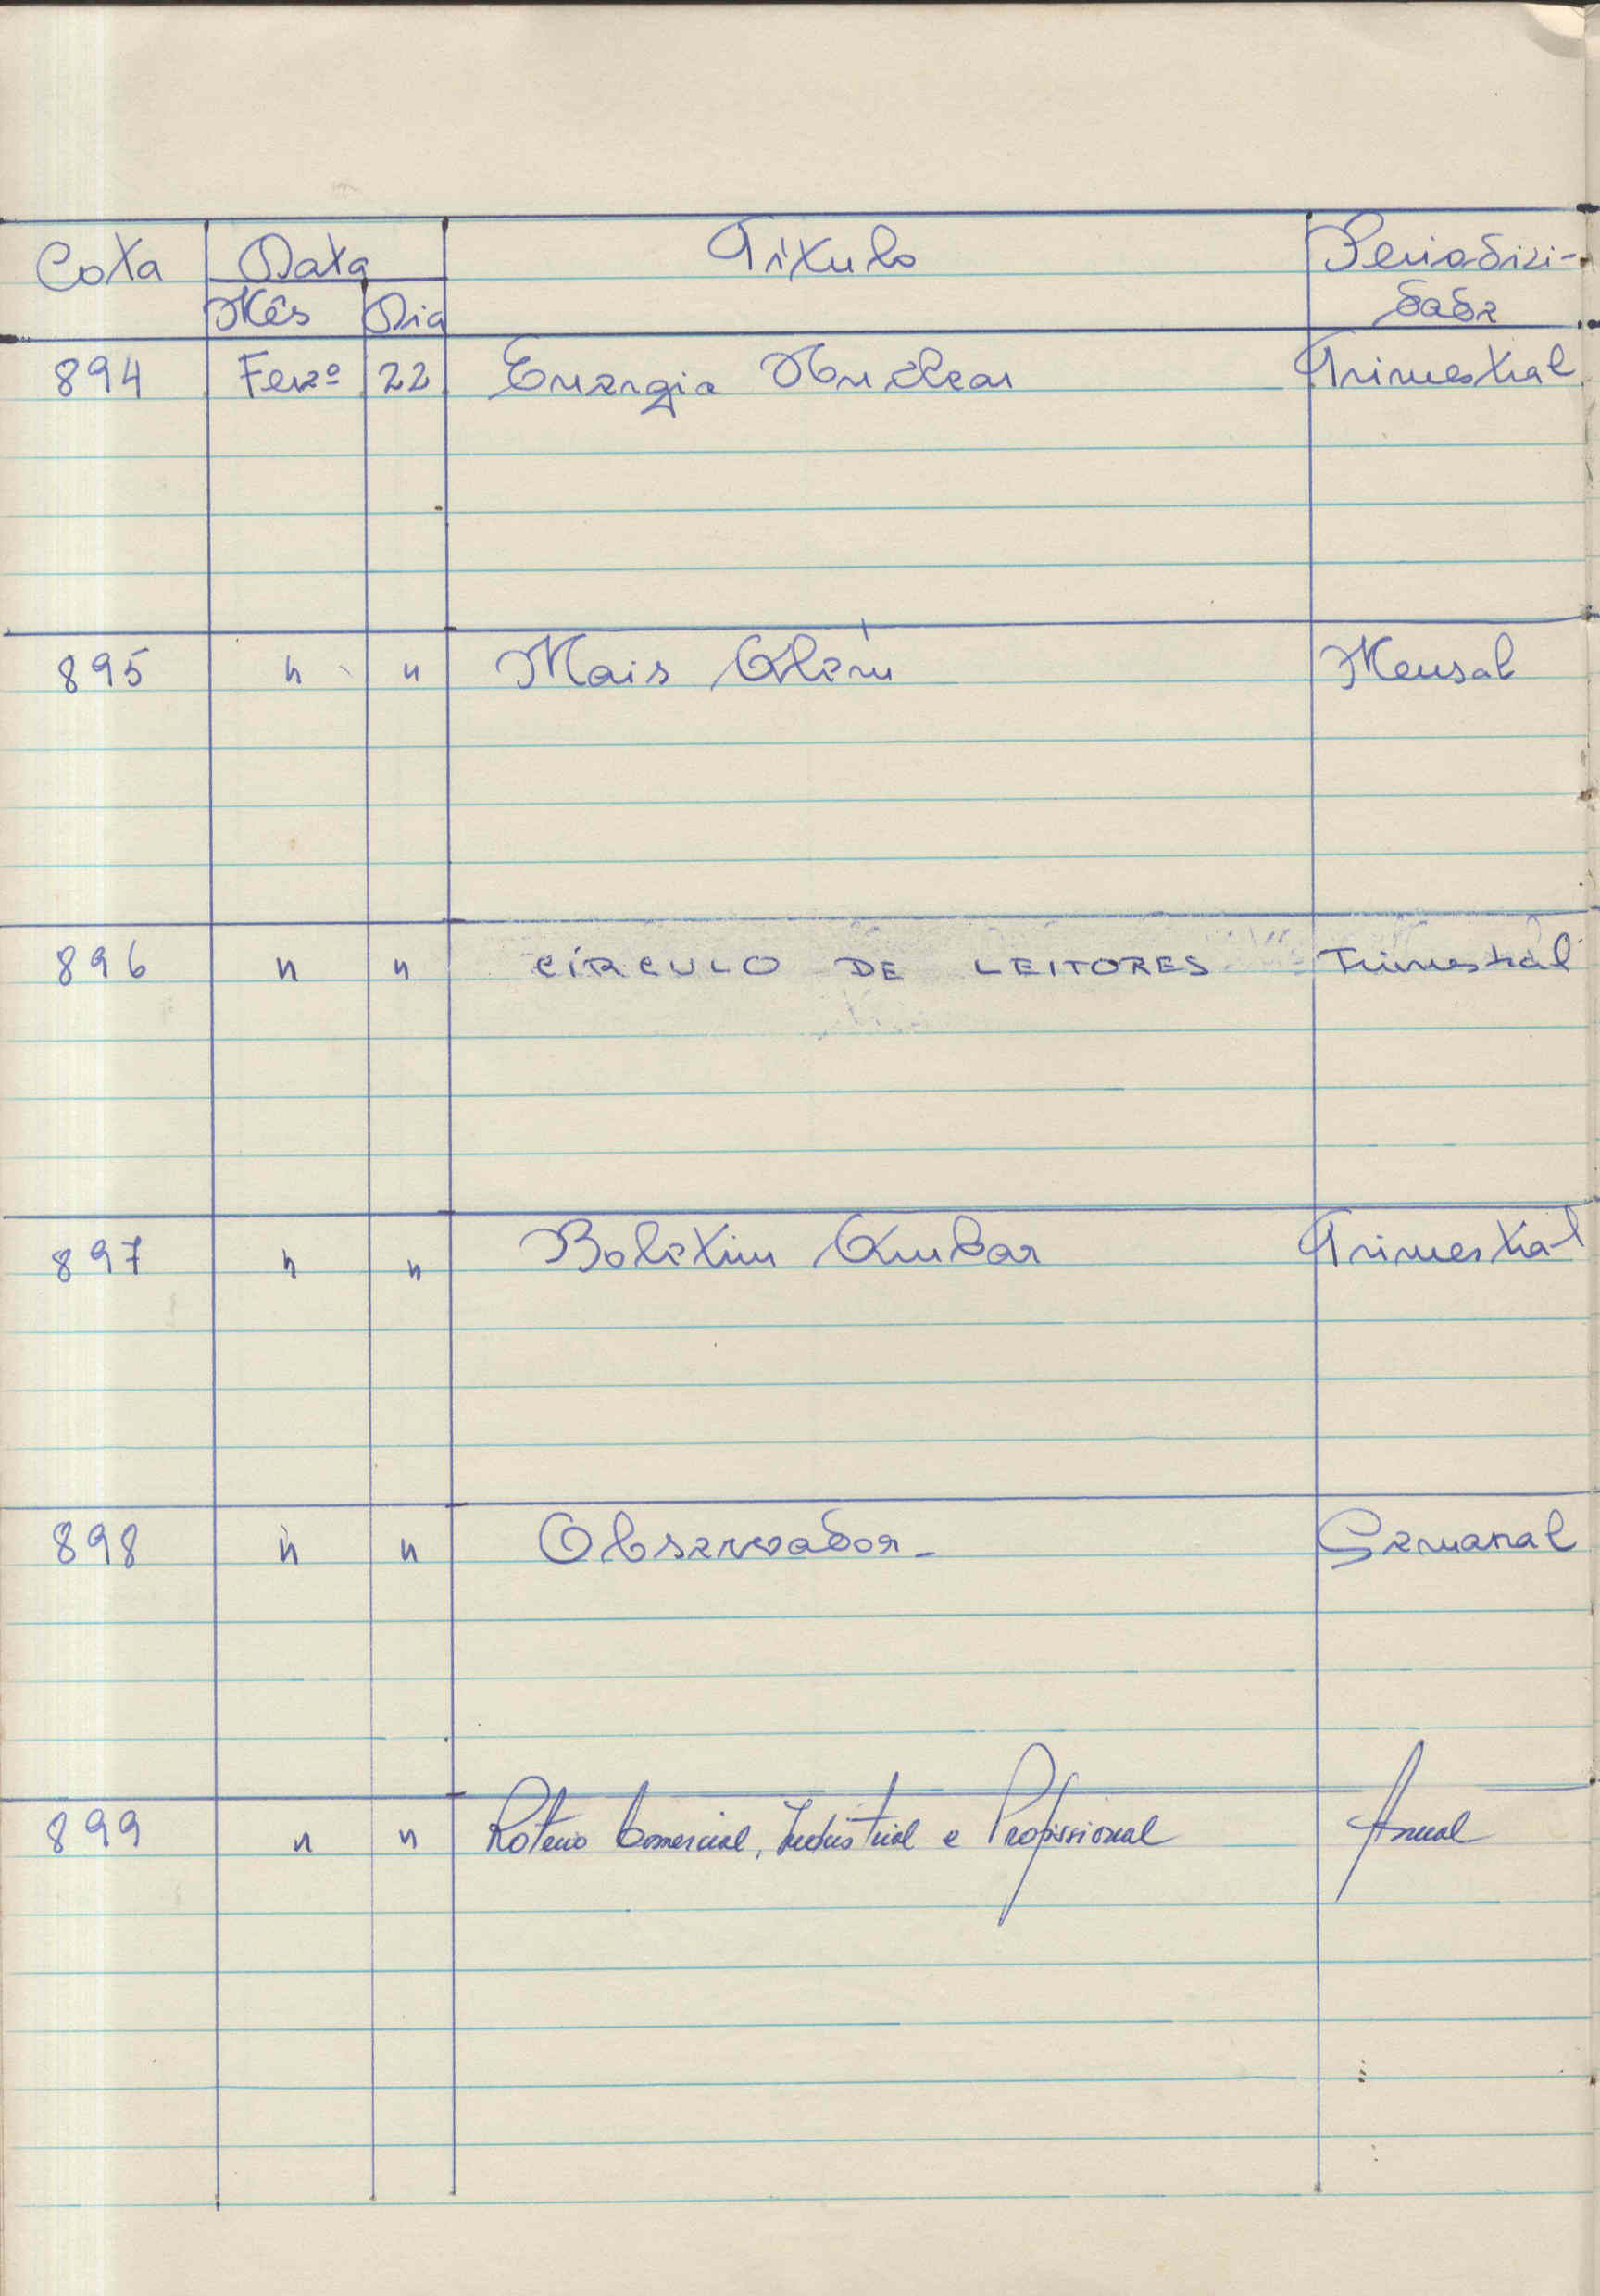 Cota Data Título Periodici-
Mês Dia dade
894 Fevº 22 Energia Nuclear Trimestral
895 " " Mais Além Mensal
896 " " CÍRCULO DE LEITORES Trimestral
897 " " Boletim Ambar Trimestral
898 " " Observador - Semanal
899 " " Roteiro Comercial, Industrial e Profissional Anual